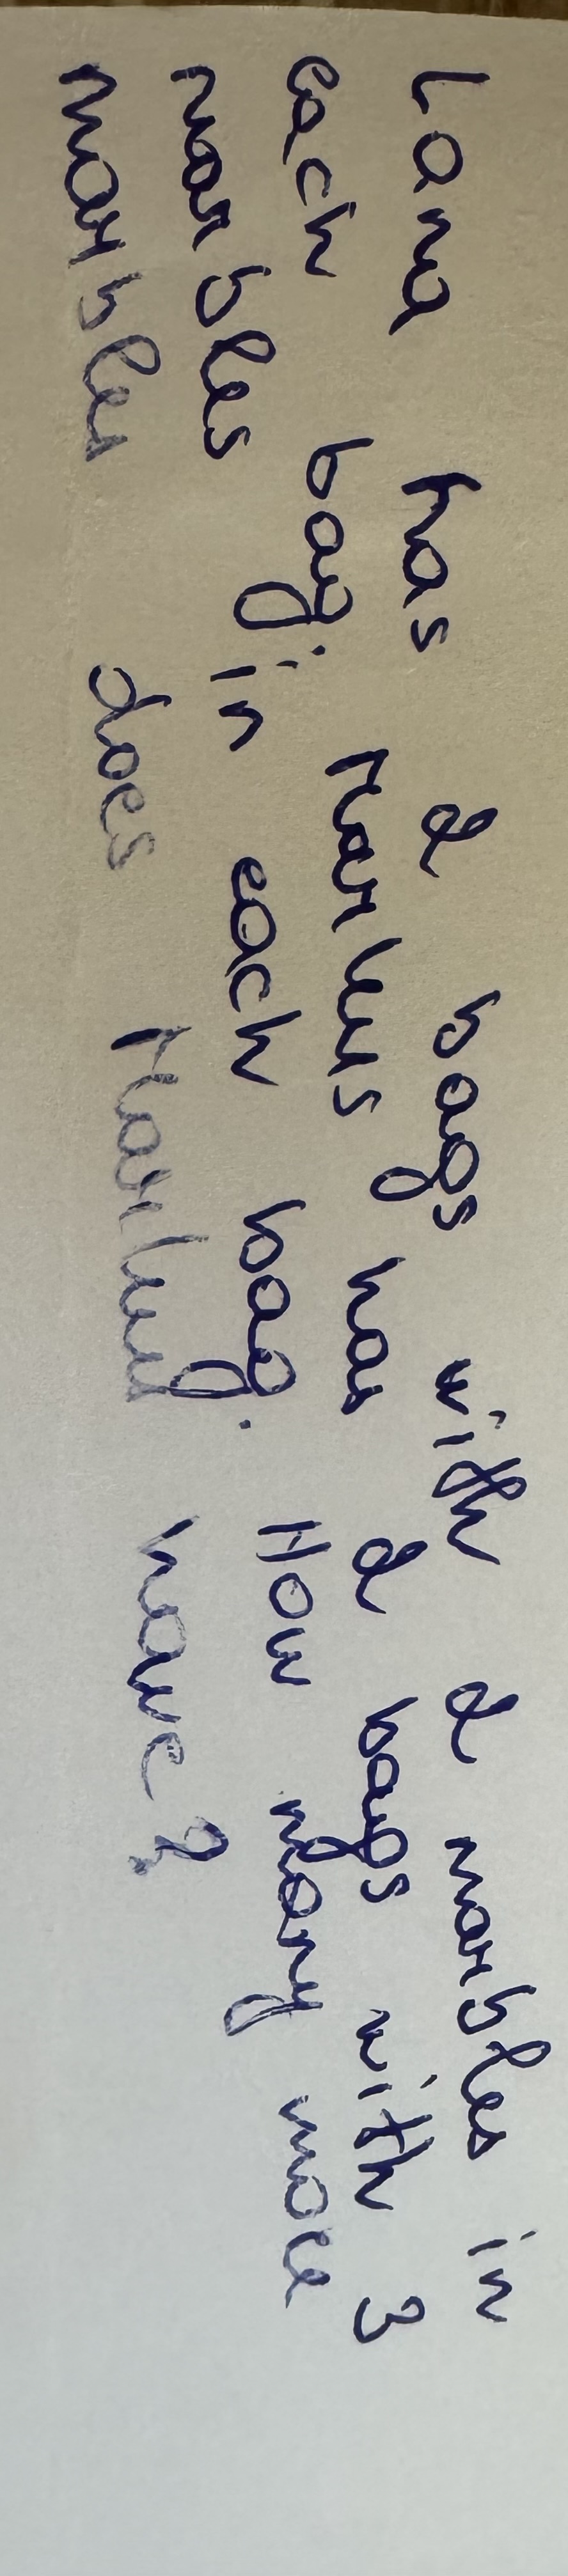 Lana has 2 bags with 2 marbles in
each bag. Markus has 2 bags with 3
marbles in each bag. How many more
marbles does Markus have?